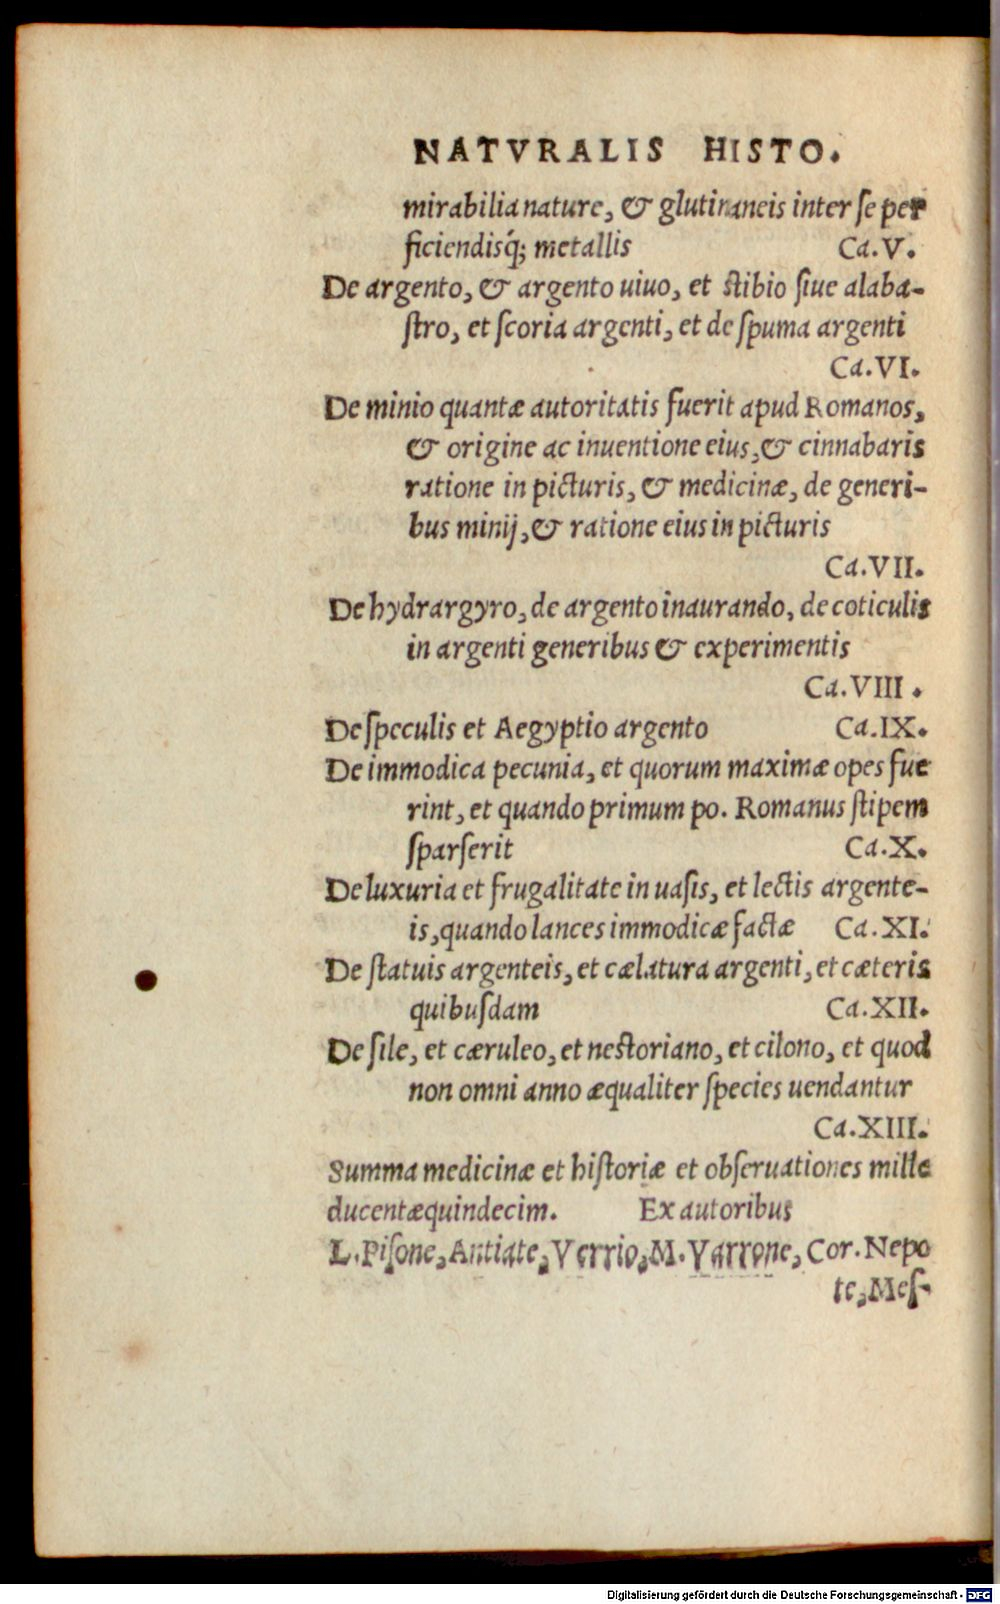 NATVRALIS HISTO.
mirabilia nature, & glutinaneis inter ſe per
ficiendisq́; metallis Ca.V.
De argento, & argento uiuo, et ſtibio ſiue alaba-
ſtro, et ſcoria argenti, et de ſpuma argenti
Ca.VI.
De minio quantæ autoritatis fuerit apud Romanos,
& origine ac inuentione eius, & cinnabaris
ratione in picturis, & medicinæ, de generi-
bus minij, & ratione eius in picturis
Ca.VII.
De hydrargyro, de argento inaurando, de coticulis
in argenti generibus & experimentis
Ca.VIII.
De ſpeculis et Aegyptio argento Ca.IX.
De immodica pecunia, et quorum maximæ opes fue
rint, et quando primum po. Romanus ſtipem
ſparſerit Ca.X.
De luxuria et frugalitate in uaſis, et lectis argente-
is, quando lances immodicæ factæ Ca.XI.
De ſtatuis argenteis, et cælatura argenti, et cæteris
quibuſdam Ca.XII.
De ſile, et cæruleo, et neſtoriano, et cilono, et quod
non omni anno æqualiter ſpecies uendantur
Ca.XIII.
Summa medicinæ et hiſtoriæ et obſeruationes mille
ducentæquindecim. Ex autoribus
L. Piſone, Antiate, Verrio, M. Varrone, Cor. Nepo
te, Meſ-
Digitalisierung gefördert durch die Deutsche Forschungsgemeinschaft - DFG